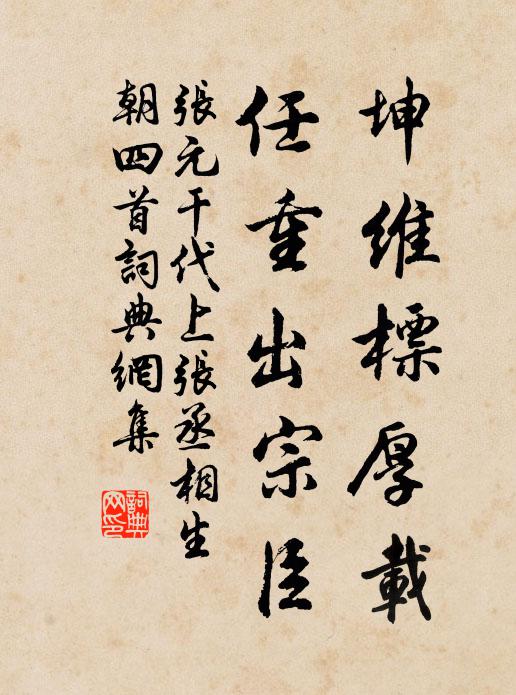 坤維標厚載
任重出宗臣
張元干代上張丞相生
朝四首詞典網集
詞典网印